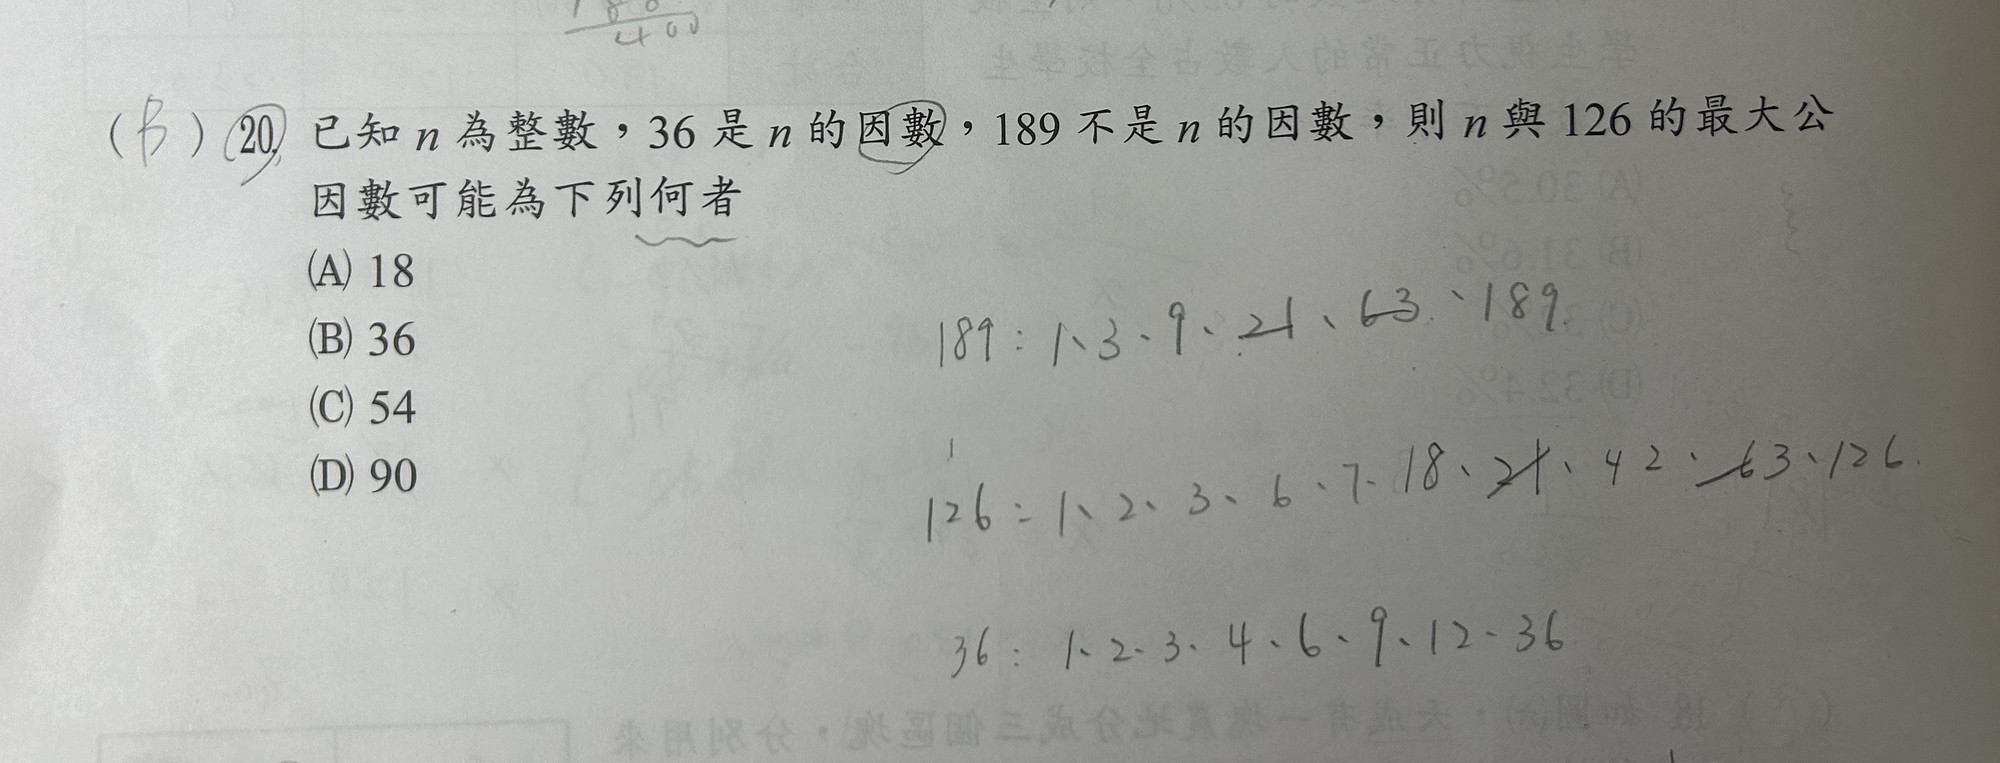 400
(B) 20. 已知 n 為整數，36 是 n 的因數，189 不是 n 的因數，則 n 與 126 的最大公
因數可能為下列何者
(A) 18
(B) 36
(C) 54
(D) 90
189：1、3、9、21、63、189
126：1、2、3、6、7、18、21、42、63、126
36：1、2、3、4、6、9、12、36